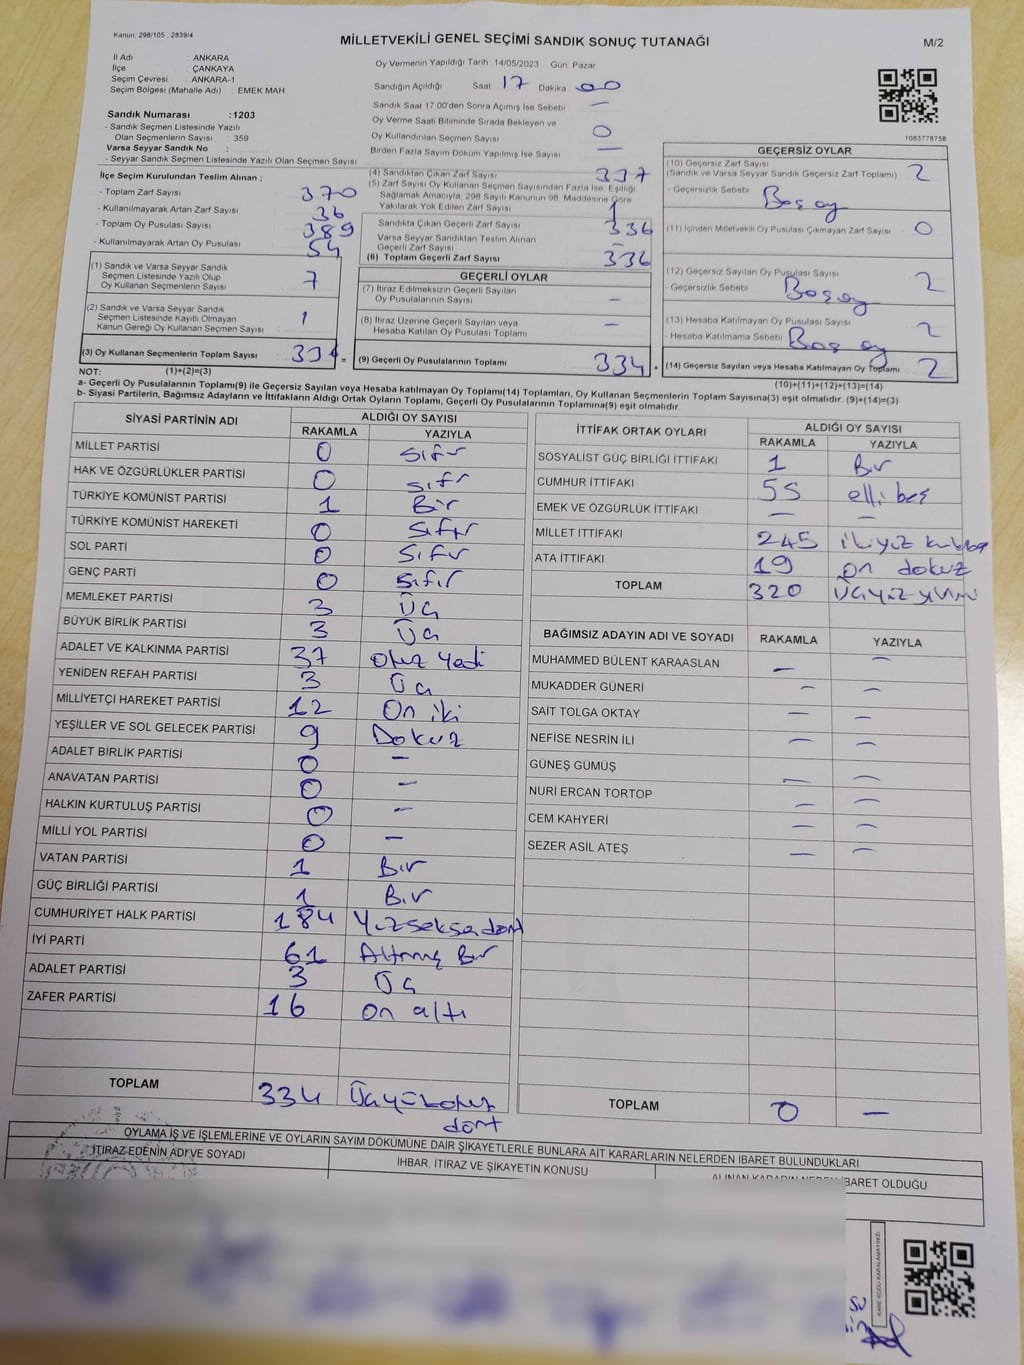 Kanun; 298/105 , 2839/4
MİLLETVEKİLİ GENEL SEÇİMİ SANDIK SONUÇ TUTANAĞI
M/2
İl Adı : ANKARA
İlçe : ÇANKAYA
Seçim Çevresi : ANKARA-1
Seçim Bölgesi (Mahalle Adı) : EMEK MAH
Sandık Numarası : 1203
- Sandık Seçmen Listesinde Yazılı
Olan Seçmenlerin Sayısı : 359
Varsa Seyyar Sandık No :
- Seyyar Sandık Seçmen Listesinde Yazılı Olan Seçmen Sayısı
Oy Vermenin Yapıldığı Tarih 14/05/2023 Gün: Pazar
Sandığın Açıldığı Saat : 17 Dakika : 00
Sandık Saat 17.00'den Sonra Açımış İse Sebebi : —
Oy Verme Saati Bitiminde Sırada Bekleyen ve
Oy Kullandırılan Seçmen Sayısı 0
Birden Fazla Sayım Döküm Yapılmış İse Sayısı —
1083778758
İlçe Seçim Kurulundan Teslim Alınan ;
- Toplam Zarf Sayısı 370
- Kullanılmayarak Artan Zarf Sayısı 36
- Toplam Oy Pusulası Sayısı 389
- Kullanılmayarak Artan Oy Pusulası 54
(1) Sandık ve Varsa Seyyar Sandık
Seçmen Listesinde Yazılı Olup
Oy Kullanan Seçmenlerin Sayısı 7
(2) Sandık ve Varsa Seyyar Sandık
Seçmen Listesinde Kayıtlı Olmayan
Kanun Gereği Oy Kullanan Seçmen Sayısı 1
(3) Oy Kullanan Seçmenlerin Toplam Sayısı =
(4) Sandıktan Çıkan Zarf Sayısı 337
(5) Zarf Sayısı Oy Kullanan Seçmen Sayısından Fazla İse, Eşitliği
Sağlamak Amacıyla, 298 Sayılı Kanunun 98. Maddesine Göre
Yakılarak Yok Edilen Zarf Sayısı 1
Sandıkta Çıkan Geçerli Zarf Sayısı 336
Varsa Seyyar Sandıktan Teslim Alınan
Geçerli Zarf Sayısı —
(6) Toplam Geçerli Zarf Sayısı 336
GEÇERLİ OYLAR
(7) İtiraz Edilmeksizin Geçerli Sayılan
Oy Pusulalarının Sayısı —
(8) İtiraz Üzerine Geçerli Sayılan veya
Hesaba Katılan Oy Pusulası Toplamı —
(9) Geçerli Oy Pusulalarının Toplamı 334 +
GEÇERSİZ OYLAR
(10) Geçersiz Zarf Sayısı
(Sandık ve Varsa Seyyar Sandık Geçersiz Zarf Toplamı) 2
- Geçersizlik Sebebi Boş oy
(11) İçinden Milletvekili Oy Pusulası Çıkmayan Zarf Sayısı 0
(12) Geçersiz Sayılan Oy Pusulası Sayısı 2
- Geçersizlik Sebebi Boş oy
(13) Hesaba Katılmayan Oy Pusulası Sayısı 2
- Hesaba Katılmama Sebebi Boş oy
(14) Geçersiz Sayılan veya Hesaba Katılmayan Oy Toplamı 2
NOT: (1)+(2)=(3)
(10)+(11)+(12)+(13)=(14)
a- Geçerli Oy Pusulalarının Toplamı(9) ile Geçersiz Sayılan veya Hesaba katılmayan Oy Toplamı(14) Toplamları, Oy Kullanan Seçmenlerin Toplam Sayısına(3) eşit olmalıdır. (9)+(14)=(3)
b- Siyasi Partilerin, Bağımsız Adayların ve İttifakların Aldığı Ortak Oyların Toplamı, Geçerli Oy Pusulalarının Toplamına(9) eşit olmalıdır.
SİYASİ PARTİNİN ADI ALDIĞI OY SAYISI
RAKAMLA YAZIYLA
MİLLET PARTİSİ 0 sıfır
HAK VE ÖZGÜRLÜKLER PARTİSİ 0 sıfır
TÜRKİYE KOMÜNİST PARTİSİ 1 Bir
TÜRKİYE KOMÜNİST HAREKETİ 0 sıfır
SOL PARTİ 0 sıfır
GENÇ PARTİ 0 sıfır
MEMLEKET PARTİSİ 3 Üç
BÜYÜK BİRLİK PARTİSİ 3 Üç
ADALET VE KALKINMA PARTİSİ 37 otuz yedi
YENİDEN REFAH PARTİSİ 3 Üç
MİLLİYETÇİ HAREKET PARTİSİ 12 On iki
YEŞİLLER VE SOL GELECEK PARTİSİ 9 Dokuz
ADALET BİRLİK PARTİSİ 0 —
ANAVATAN PARTİSİ 0 —
HALKIN KURTULUŞ PARTİSİ 0 —
MİLLİ YOL PARTİSİ 0 —
VATAN PARTİSİ 1 Bir
GÜÇ BİRLİĞİ PARTİSİ 1 Bir
CUMHURİYET HALK PARTİSİ 184 Yüzseksendört
İYİ PARTİ 61 Altmış Bir
ADALET PARTİSİ 3 Üç
ZAFER PARTİSİ 16 on altı
TOPLAM 334 Üçyüzotuz
dört
İTTİFAK ORTAK OYLARI ALDIĞI OY SAYISI
RAKAMLA YAZIYLA
SOSYALİST GÜÇ BİRLİĞİ İTTİFAKI 1 Bir
CUMHUR İTTİFAKI 55 elli beş
EMEK VE ÖZGÜRLÜK İTTİFAKI — —
MİLLET İTTİFAKI 245 ikiyüz
ATA İTTİFAKI 19 on dokuz
TOPLAM 320 Üçyüz yirmi
BAĞIMSIZ ADAYIN ADI VE SOYADI RAKAMLA YAZIYLA
MUHAMMED BÜLENT KARAASLAN — —
MUKADDER GÜNERİ — —
SAİT TOLGA OKTAY — —
NEFİSE NESRİN İLİ — —
GÜNEŞ GÜMÜŞ — —
NURİ ERCAN TORTOP — —
CEM KAHYERİ — —
SEZER ASİL ATEŞ — —
TOPLAM 0 —
OYLAMA İŞ VE İŞLEMLERİNE VE OYLARIN SAYIM DÖKÜMÜNE DAİR ŞİKAYETLERLE BUNLARA AİT KARARLARIN NELERDEN İBARET BULUNDUKLARI
İTİRAZ EDENİN ADI VE SOYADI
İHBAR, İTİRAZ VE ŞİKAYETİN KONUSU
ALINAN KARARIN NEDEN İBARET OLDUĞU
KARE KODU KARALAMAYINIZ!